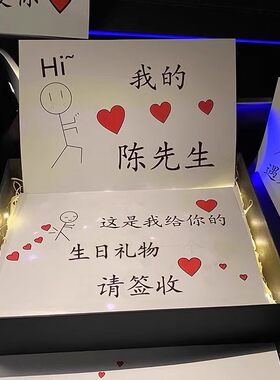 发你
Hi~
我的
陈先生
这是我给你的
生日礼物
请签收
遇